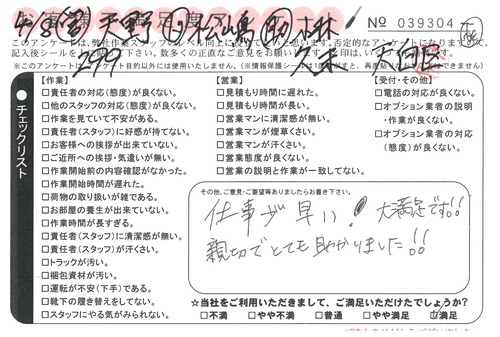 4/8 営 天野 松嶋 助
No 039304
299
このアンケートは、弊社作業スタッフのレベル向上に役立てたいと思います。否定的なアンケートになりますが、
記入後シールをして
※このアンケートは、アンケート目的以外には使用いたしません。
チェックリスト
【作業】
□責任者の対応(態度)が良くない。
□他のスタッフの対応(態度)が良くない。
□作業を見ていて不安がある。
□責任者(スタッフ)に好感が持てない。
□お客様への挨拶が出来ていない。
□ご近所への挨拶・気遣いが無い。
□作業開始前の内容確認がなかった。
□作業開始時間が遅れた。
□荷物の取り扱いが雑である。
□お部屋の養生が出来ていない。
□作業時間が長すぎる。
□責任者(スタッフ)に清潔感が無い。
□責任者(スタッフ)が汗くさい。
□トラックが汚い。
□梱包資材が汚い。
□運転が不安(下手)である。
□靴下の履き替えをしてない。
□スタッフにやる気がみられない。
【営業】
□見積もり時間に遅れた。
□見積もり時間が長い。
□営業マンに清潔感が無い。
□営業マンが煙草くさい。
□営業マンが汗くさい。
□営業態度が良くない。
□営業の説明と作業が一致してない。
【受付・その他】
□電話の対応が良くない。
□オプション業者の説明
・作業が良くない。
□オプション業者の対応
(態度)が良くない。
その他、ご意見・ご要望等ありましたらお書き下さい。
仕事が早い! 大満足です!!
親切でとても助かりました!!
☆当社をご利用いただきまして、ご満足いただけたでしょうか?
□不満 □やや不満 □普通 □やや満足 □満足